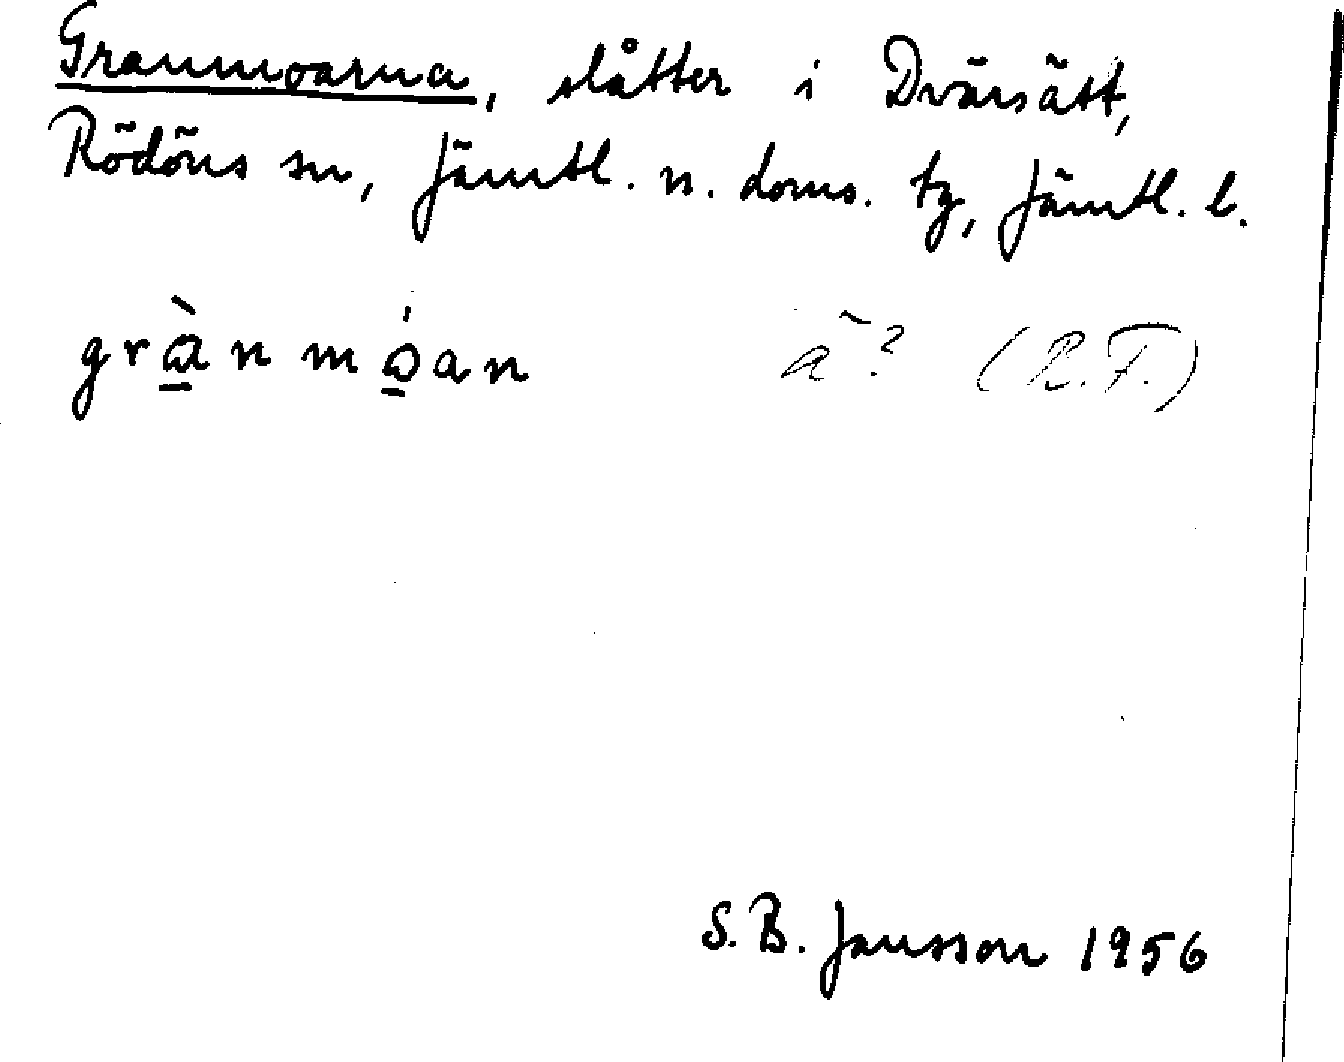 Granmoarna, slåtter i Dvärsätt,
Rödöns sn, Jämtl. n. doms. tg, Jämtl. l.
grànmóan ā? (R.F.)
S.B. Jansson 1956